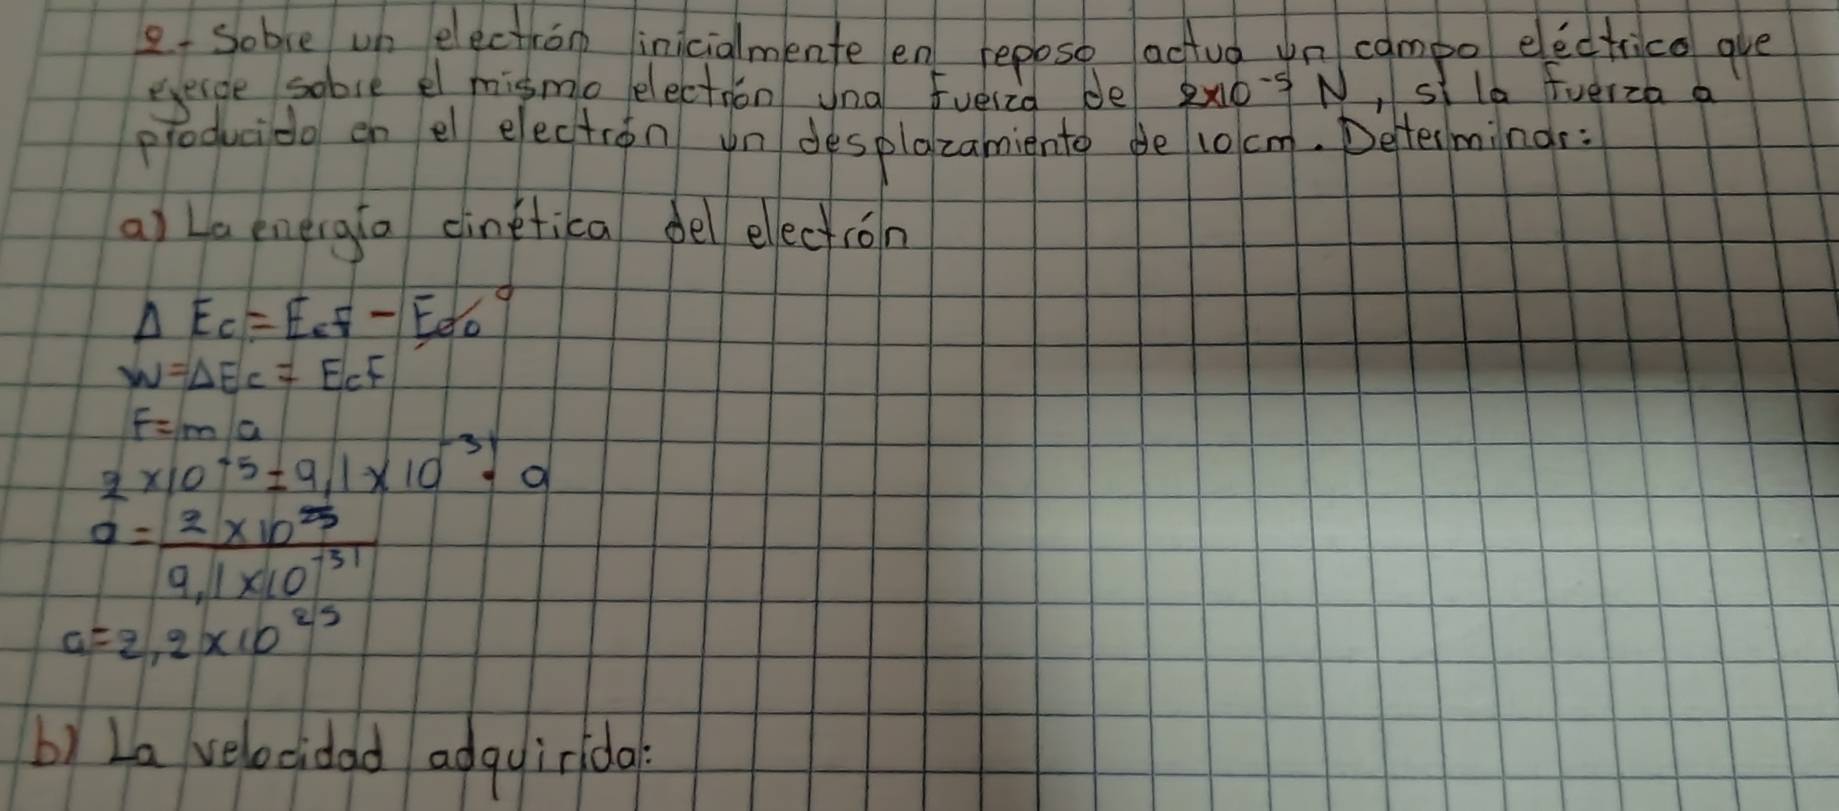 2- Sobre un electrón inicialmente en reposo actua un campo eléctrico que
ejerce sobre el mismo electrón una fuerza de 2x10⁻⁵ N, si la fuerza a
producido en el electrón un desplazamiento de 10 cm. Determinar:
a) La energía cinética del electrón
Δ Ec = Ecf - Eco⁰
W = ΔEc = EcF
F = m a
2 x 10⁻⁵ = 9,1 x 10⁻³¹ · a
a = 2 x 10⁻⁵
9,1 x 10⁻³¹
a = 2,2 x 10²⁵
b) La velocidad adquirida: